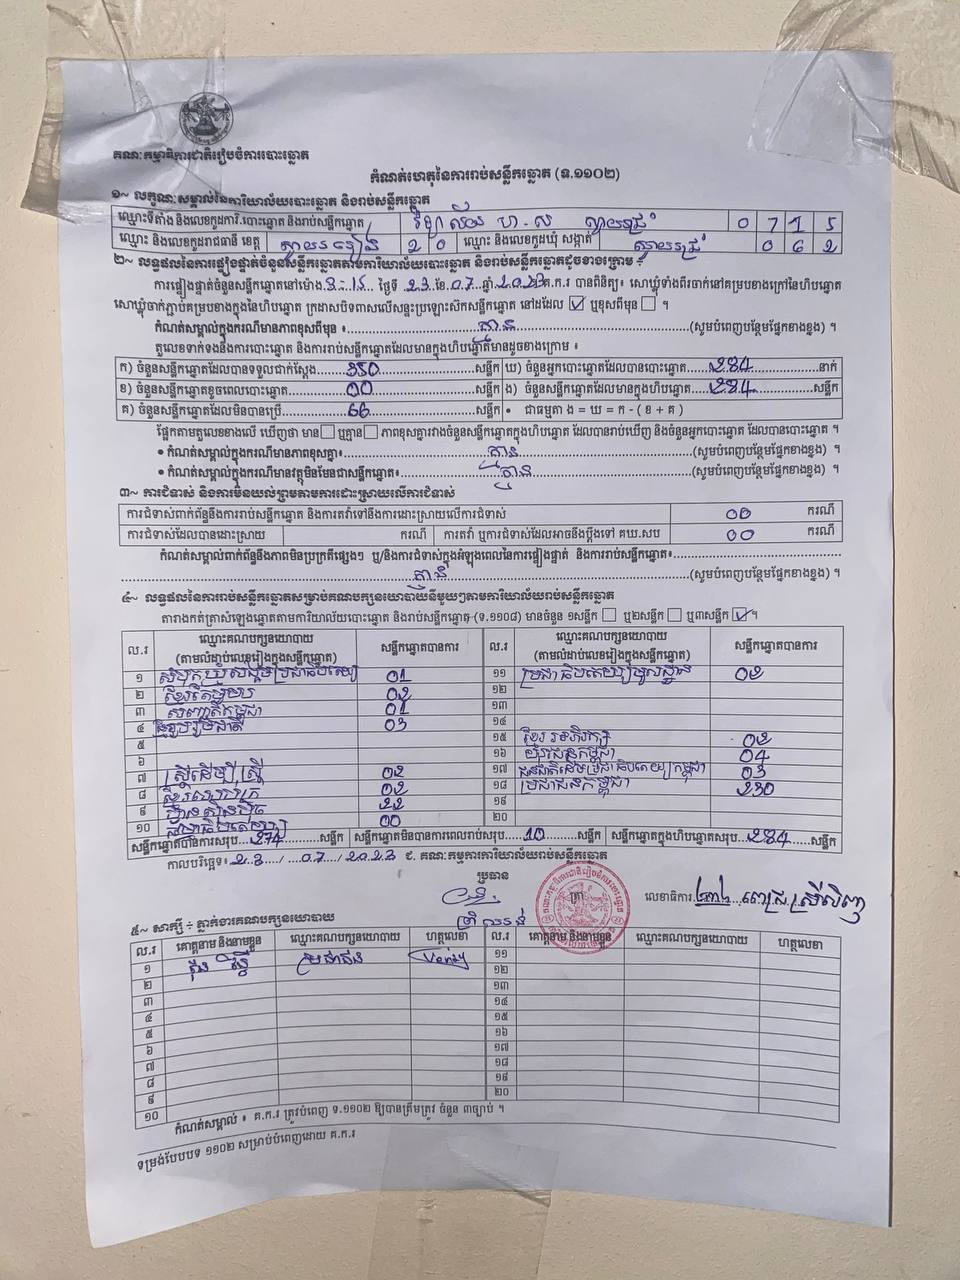 គណៈកម្មាធិការជាតិរៀបចំការបោះឆ្នោត
កំណត់ហេតុនៃការរាប់សន្លឹកឆ្នោត (ទ.១១០២)
១~ លក្ខណៈសម្គាល់នៃការិយាល័យបោះឆ្នោត និងរាប់សន្លឹកឆ្នោត
ឈ្មោះទីតាំង និងលេខកូដការិ.បោះឆ្នោត និងរាប់សន្លឹកឆ្នោត 0 7 1 5
ឈ្មោះ និងលេខកូដរាជធានី ខេត្ត ស្វាយរៀង 2 0 ឈ្មោះ និងលេខកូដឃុំ សង្កាត់ 0 6 2
២~ លទ្ធផលនៃការផ្ទៀងផ្ទាត់ចំនួនសន្លឹកឆ្នោតតាមការិយាល័យបោះឆ្នោត និងរាប់សន្លឹកឆ្នោតដូចខាងក្រោម ៖
ការផ្ទៀងផ្ទាត់ចំនួនសន្លឹកឆ្នោតនៅម៉ោង 3-15 ថ្ងៃទី 23 ខែ 07 ឆ្នាំ 2023 គ.ក.រ បានពិនិត្យ៖ សោឃ្លុំទាំងពីរចាក់នៅគម្របខាងក្រៅនៃហិបឆ្នោត
សោឃ្លុំចាក់ភ្ជាប់គម្របខាងក្នុងនៃហិបឆ្នោត ក្រដាសបិទពាសលើសន្ទះប្រឡោះស៊កសន្លឹកឆ្នោត នៅដដែល ☑ ឬខុសពីមុន ☐ ។
កំណត់សម្គាល់ក្នុងករណីមានភាពខុសពីមុន ៖ គ្មាន (សូមបំពេញបន្ថែមផ្នែកខាងខ្នង) ។
តួលេខទាក់ទងនឹងការបោះឆ្នោត និងការរាប់សន្លឹកឆ្នោតដែលមានក្នុងហិបឆ្នោតមានដូចខាងក្រោម ៖
ក) ចំនួនសន្លឹកឆ្នោតដែលបានទទួលជាក់ស្តែង 350 សន្លឹក ឃ) ចំនួនអ្នកបោះឆ្នោតដែលបានបោះឆ្នោត 284 នាក់
ខ) ចំនួនសន្លឹកឆ្នោតខូចពេលបោះឆ្នោត 00 សន្លឹក ង) ចំនួនសន្លឹកឆ្នោតដែលមានក្នុងហិបឆ្នោត 284 សន្លឹក
គ) ចំនួនសន្លឹកឆ្នោតដែលមិនបានប្រើ 66 សន្លឹក • ជាធម្មតា ង = ឃ = ក - ( ខ + គ )
ផ្អែកតាមតួលេខខាងលើ ឃើញថា មាន ☐ ឬគ្មាន ☐ ភាពខុសគ្នារវាងចំនួនសន្លឹកឆ្នោតក្នុងហិបឆ្នោត ដែលបានរាប់ឃើញ និងចំនួនអ្នកបោះឆ្នោត ដែលបានបោះឆ្នោត ។
• កំណត់សម្គាល់ក្នុងករណីមានភាពខុសគ្នា៖ គ្មាន (សូមបំពេញបន្ថែមផ្នែកខាងខ្នង) ។
• កំណត់សម្គាល់ក្នុងករណីមានវត្ថុមិនមែនជាសន្លឹកឆ្នោត៖ គ្មាន (សូមបំពេញបន្ថែមផ្នែកខាងខ្នង) ។
៣~ ការជំទាស់ និងការមិនយល់ព្រមតាមការដោះស្រាយលើការជំទាស់
ការជំទាស់ពាក់ព័ន្ធនឹងការរាប់សន្លឹកឆ្នោត និងការតវ៉ាទៅនឹងការដោះស្រាយលើការជំទាស់ 00 ករណី
ការជំទាស់ដែលបានដោះស្រាយ ករណី ការតវ៉ា ឬការជំទាស់ដែលអាចនឹងប្តឹងទៅ គឃ.សប 00 ករណី
កំណត់សម្គាល់ពាក់ព័ន្ធនឹងភាពមិនប្រក្រតីផ្សេងៗ ឬ/និងការជំទាស់ក្នុងអំឡុងពេលនៃការផ្ទៀងផ្ទាត់ និងការរាប់សន្លឹកឆ្នោត៖
គ្មាន (សូមបំពេញបន្ថែមផ្នែកខាងខ្នង) ។
៤~ លទ្ធផលនៃការរាប់សន្លឹកឆ្នោតសម្រាប់គណបក្សនយោបាយនីមួយៗតាមការិយាល័យរាប់សន្លឹកឆ្នោត
តារាងកត់ត្រាសំឡេងឆ្នោតតាមការិយាល័យបោះឆ្នោត និងរាប់សន្លឹកឆ្នោត (ទ.១១០៨) មានចំនួន ១សន្លឹក ☐ ឬ២សន្លឹក ☐ ឬ៣សន្លឹក ☑ ។
ល.រ ឈ្មោះគណបក្សនយោបាយ (តាមលំដាប់លេខរៀងក្នុងសន្លឹកឆ្នោត) សន្លឹកឆ្នោតបានការ ល.រ ឈ្មោះគណបក្សនយោបាយ (តាមលំដាប់លេខរៀងក្នុងសន្លឹកឆ្នោត) សន្លឹកឆ្នោតបានការ
១ សំបុកឃ្មុំសង្គមប្រជាធិបតេយ្យ 01 ១១ ប្រជាធិបតេយ្យមូលដ្ឋាន 02
២ ខ្មែរតែមួយ 02 ១២
៣ សញ្ជាតិកម្ពុជា 01 ១៣
៤ ខ្មែររួបរួមជាតិ 03 ១៤
៥ ១៥ ខ្មែរអភិរក្ស 02
៦ ១៦ យុវជនកម្ពុជា 04
៧ ស្ត្រីដើម្បីស្ត្រី 02 ១៧ ជនជាតិដើមប្រជាធិបតេយ្យកម្ពុជា 03
៨ 02 ១៨ ប្រជាជនកម្ពុជា 230
៩ ហ៊្វុនស៊ិនប៉ិច 22 ១៩
១០ 00 ២០
សន្លឹកឆ្នោតបានការសរុប 274 សន្លឹក សន្លឹកឆ្នោតមិនបានការពេលរាប់សរុប 10 សន្លឹក សន្លឹកឆ្នោតក្នុងហិបឆ្នោតសរុប 284 សន្លឹក
កាលបរិច្ឆេទ៖ 23 / 07 / 2023 ៩. គណៈកម្មការការិយាល័យរាប់សន្លឹកឆ្នោត
ប្រធាន ត្រា លេខាធិការ
៥~ សាក្សី ÷ ភ្នាក់ងារគណបក្សនយោបាយ
ល.រ គោត្តនាម និងនាមខ្លួន ឈ្មោះគណបក្សនយោបាយ ហត្ថលេខា ល.រ គោត្តនាម និងនាមខ្លួន ឈ្មោះគណបក្សនយោបាយ ហត្ថលេខា
១ ប្រជាជន ១១
២ ១២
៣ ១៣
៤ ១៤
៥ ១៥
៦ ១៦
៧ ១៧
៨ ១៨
៩ ១៩
១០ ២០
កំណត់សម្គាល់ ៖ គ.ក.រ ត្រូវបំពេញ ទ.១១០២ ឱ្យបានត្រឹមត្រូវ ចំនួន ៣ច្បាប់ ។
ទម្រង់បែបបទ ១១០២ សម្រាប់បំពេញដោយ គ.ក.រ